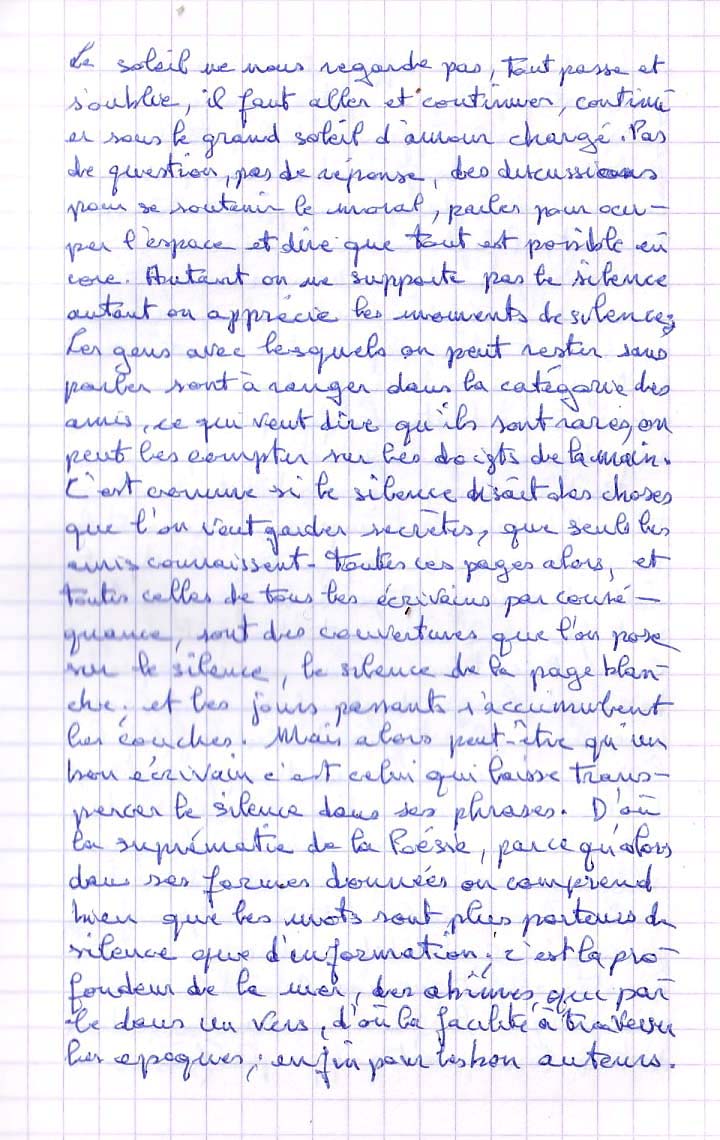 Le soleil ne nous regarde pas, tout passe et
s'oublie, il faut aller et continuer, continu
er sous le grand soleil d'amour chargé. Pas
de question, pas de réponse, des discussions
pour se soutenir le moral, parler pour occu-
per l'espace et dire que tout est possible en
core. Autant on ne supporte pas le silence
autant on apprécie les moments de silence;
Les gens avec lesquels on peut rester sans
parler sont à ranger dans la catégorie des
amis, ce qui veut dire qu'ils sont rares, on
peut les compter sur les doigts de la main.
C'est comme si le silence disait des choses
que l'on veut garder secrètes, que seuls les
amis connaissent. Toutes ces pages alors, et
toutes celles de tous les écrivains par consé-
quance, sont des couvertures que l'on pose
sur le silence, le silence de la page blan-
che; et les jours passants s'accumulent
les couches. Mais alors peut-être qu'un
bon écrivain c'est celui qui laisse trans-
percer le silence dans ses phrases. D'où
la suprématie de la Poésie, parce qu'alors
dans ses formes données on comprend
bien que les mots sont plus porteurs de
silence que d'information; c'est la pro-
fondeur de la mer, des abîmes, que par
le dans un vers, d'où la facilité à traverser
les époques; enfin pour les bon auteurs.